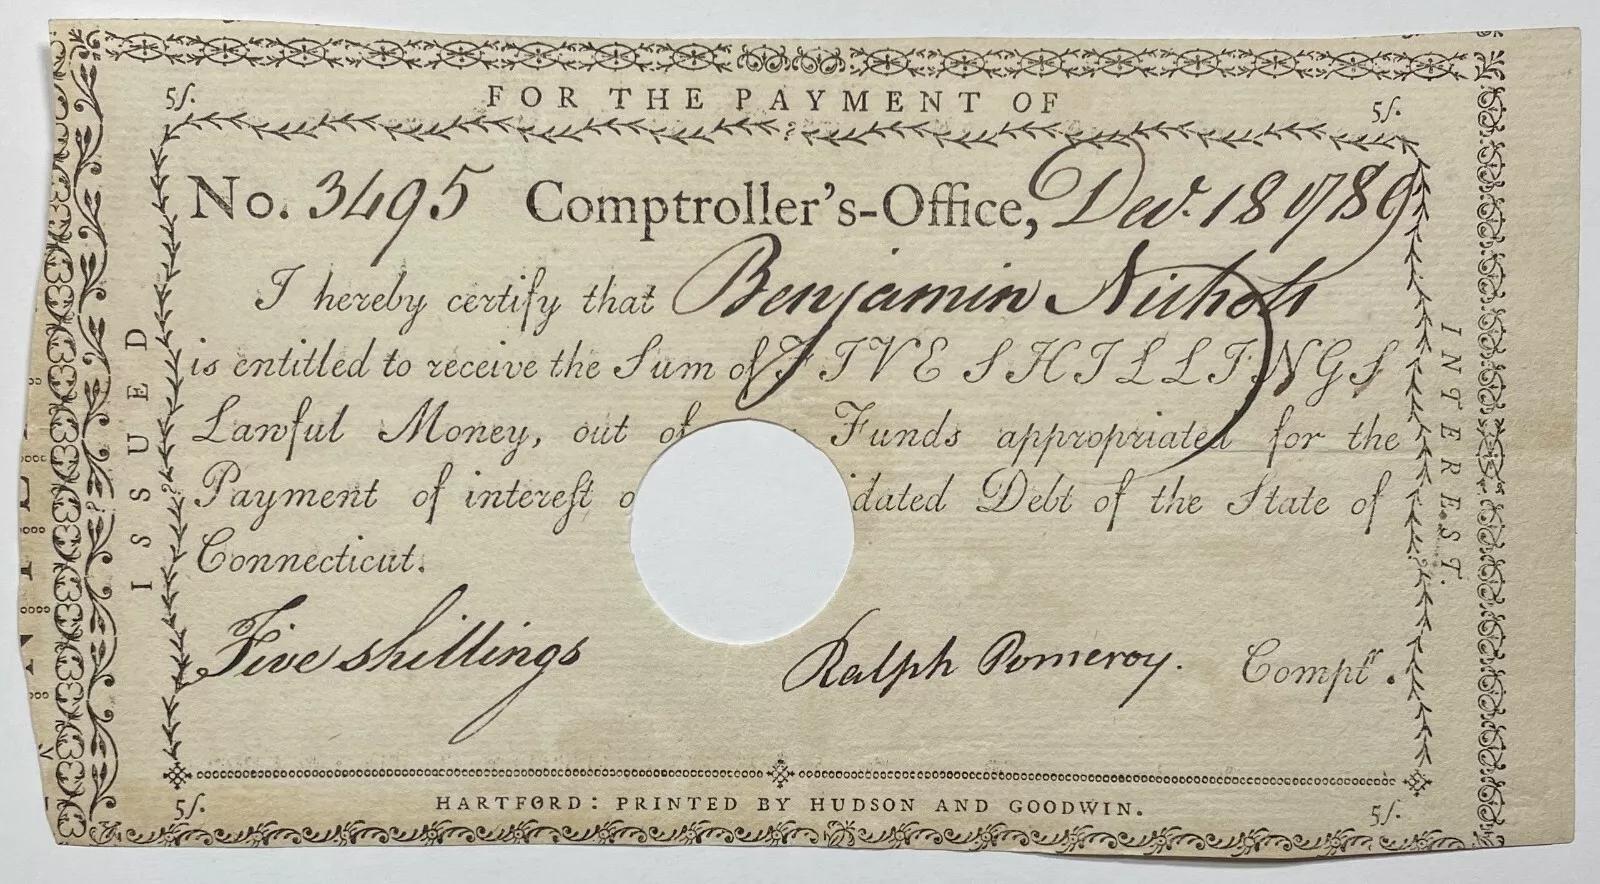 5ſ. FOR THE PAYMENT OF 5ſ.
No. 3495 Comptroller's-Office, Decr. 18 1789
I hereby certify that Benjamin Nichols
is entitled to receive the Sum of FIVE SHILLINGS
Lawful Money, out of Funds appropriated for the
Payment of intereſt o dated Debt of the State of
Connecticut.
Five shillings Ralph Pomeroy. Comptr.
5ſ. HARTFORD: PRINTED BY HUDSON AND GOODWIN. 5ſ.
ISSUED
INTEREST.